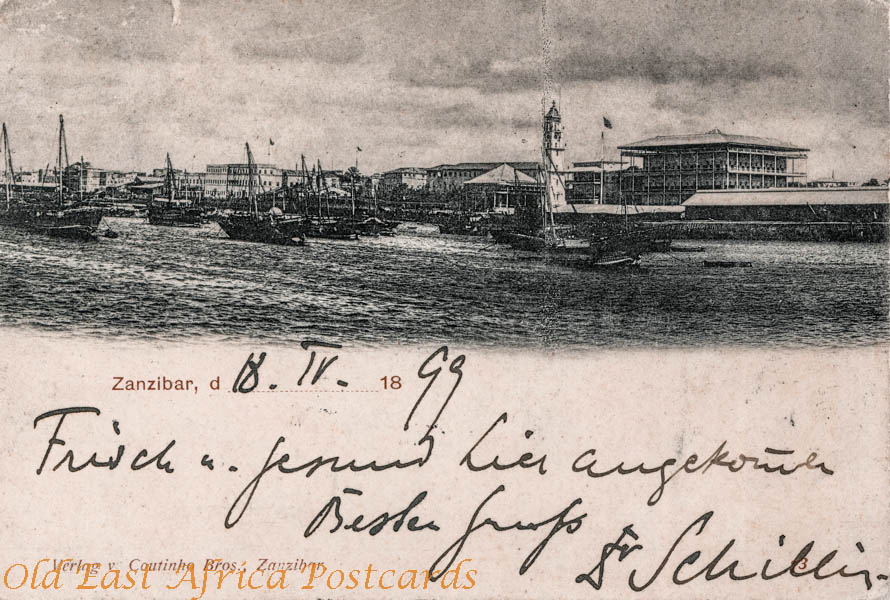 Zanzibar, d 18. IV. 1899
Frisch u. gesund hier angekommen
Besten Gruß
Dr Schilling
Verlag v. Coutinho Bros., Zanzibar.
3
Old East Africa Postcards